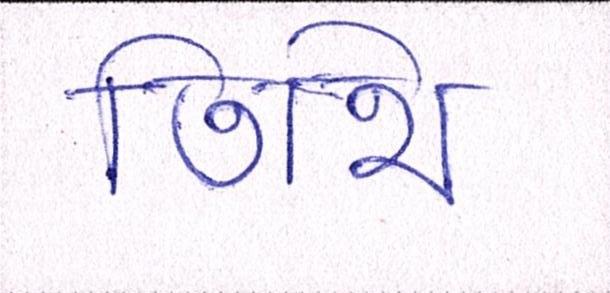 তিথি